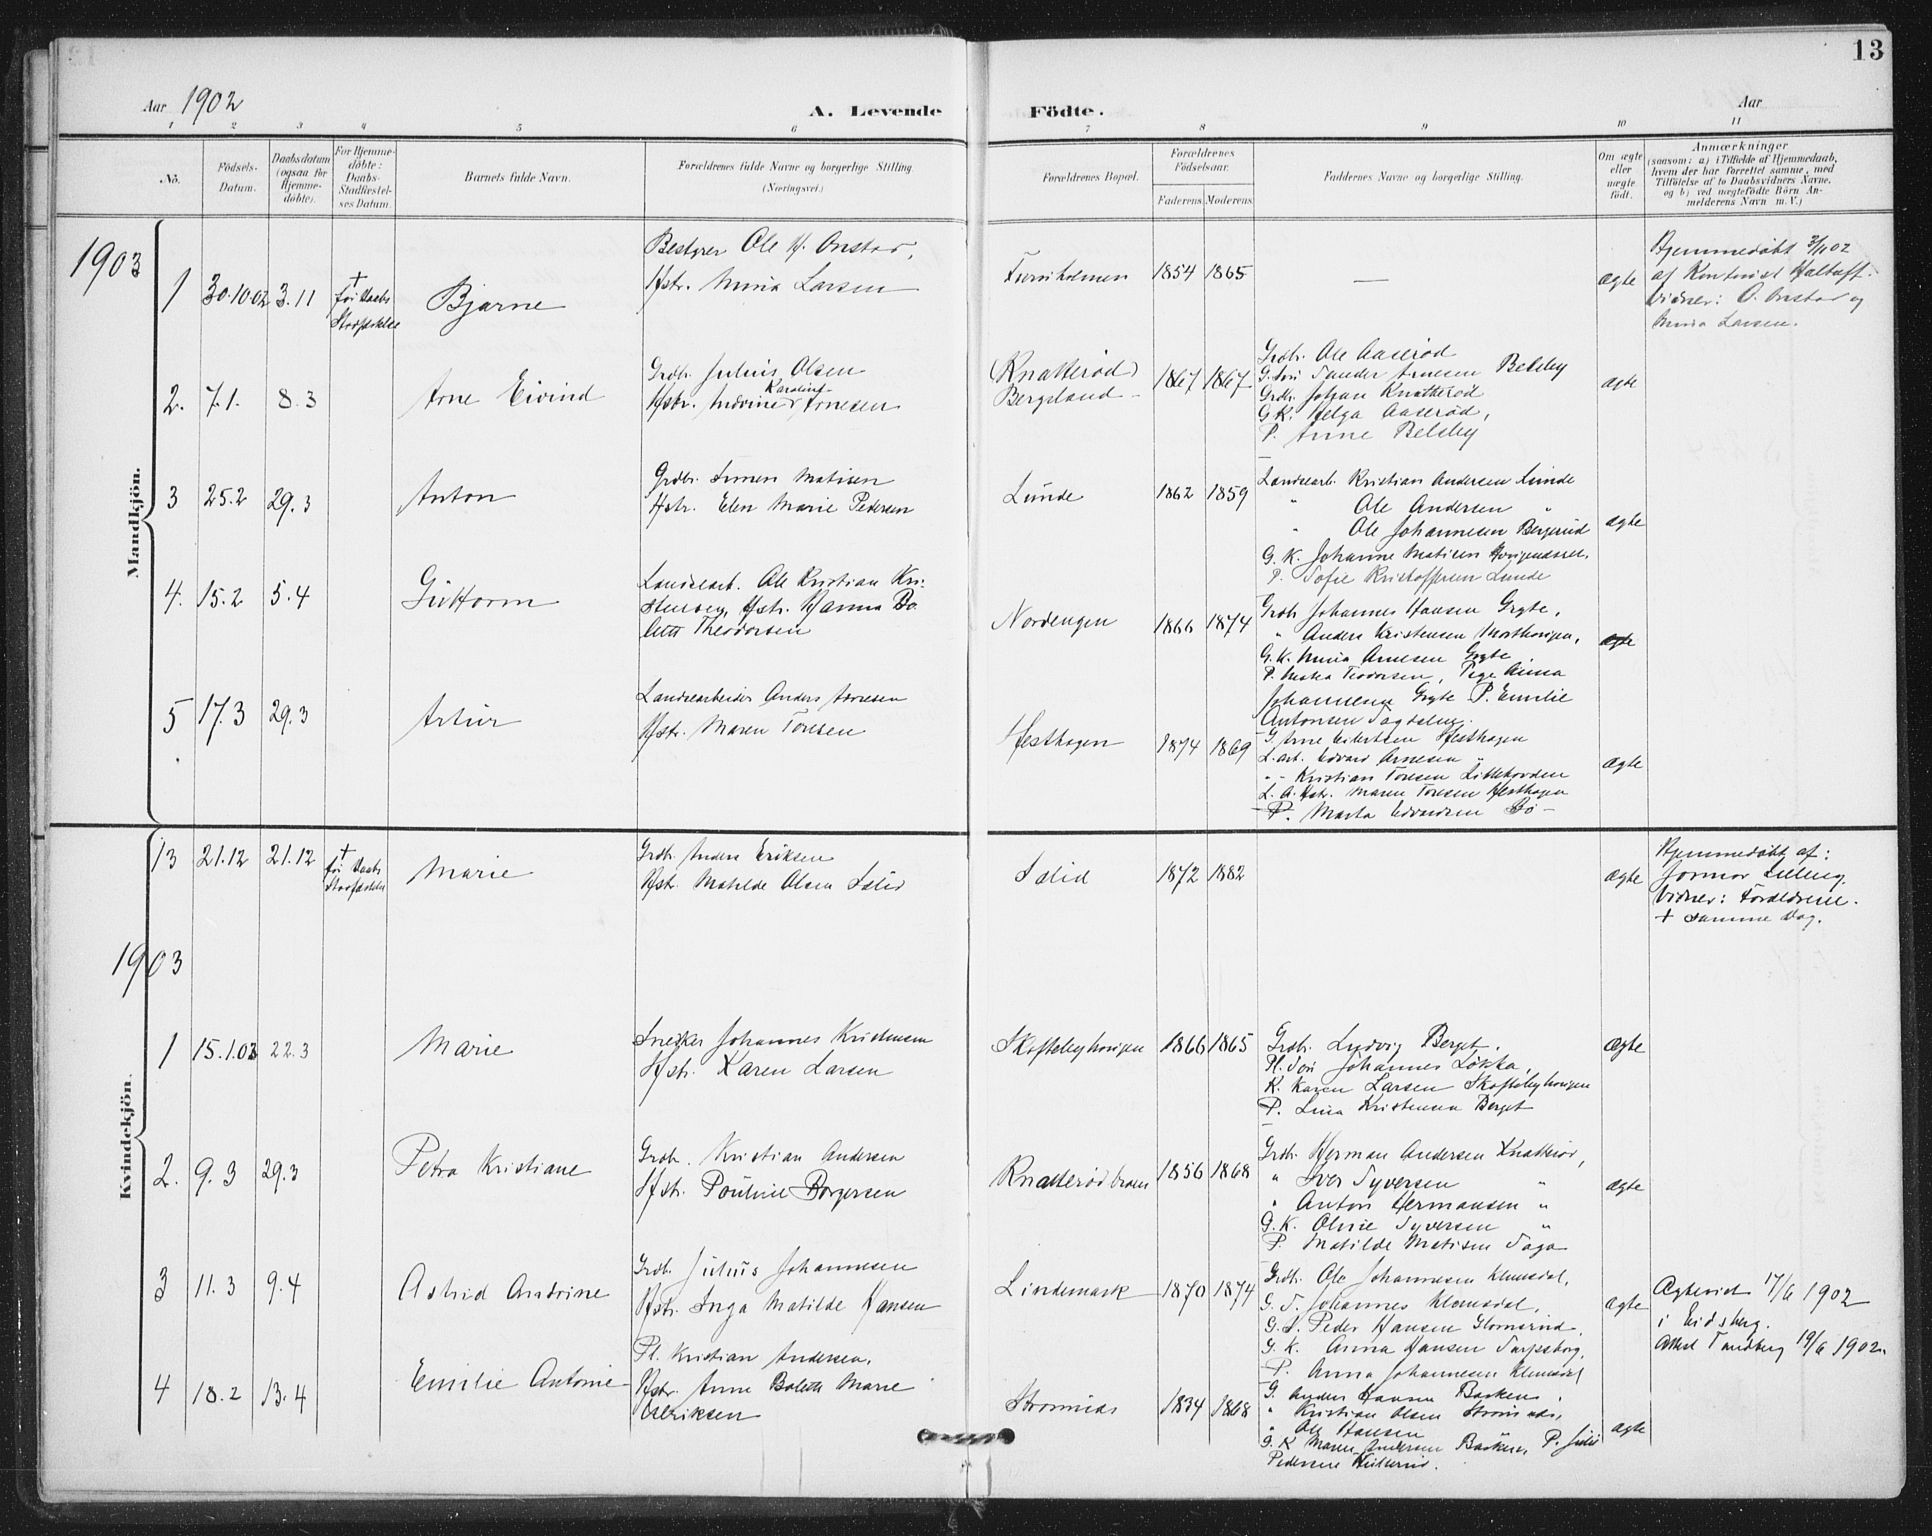 13
Aar 1902
A. Levende
Födte.
Aar
1 2 3 4 5 6 7 8 9 10 11
No.
Födsels-
Datum.
Daabsdatum
(ogsaa för
Hjemme-
döbte).
For Hjemme-
döbte:
Daabs-
Stadfæstel-
ses Datum.
Barnets fulde Navn.
Forældrenes fulde Navne og borgerlige Stilling.
(Næringsvei.)
Forældrenes Bopæl.
Forældrenes
Födselsaar.
Faderens Moderens
Faddernes Navne og borgerlige Stilling.
Om ægte
eller
uægte
födt.
Anmærkninger
(saasom: a) i Tilfælde af Hjemmedaab,
hvem der har forrettet samme, med
Tilföielse af to Daabsvidners Navne,
og b) ved uegtefödte Börn An-
melderens Navn m. V.)
Mandkjön.
1903
1 30.10.02 3.11
†
för Daabs
Stadfæstelse
Bjarne
Bestyrer Ole H. Onstad,
Hstr. Mina Larsen
1854 1865
—
ægte
Hjemmedøbt 3/11 02
af
Vidner: O. Onstad og
Mina Larsen.
2. 7.1. 8.3
Arne Eivind
Grdb. Julius Olsen
Karoline
Hstr. Andrine Arnesen
(Knatterød)
Bergeland
1867 1867
Grdb. Ole Aaserød
G. søn Sander Arnesen Belsby
Grdb. Johan Knatterød
G.K. Helga Aaserød,
P. Anne Belsby
ægte
3 25.2 29.3
Anton
Grdbr. Simen Matisen
Hstr. Elen Marie Pedersen
Lunde
1862 1859
Landsearb. Kristian Andersen Lunde
" Ole Andersen "
" Ole Johannesen Bergerud
G. K. Johanne Matisen
P. Sofie Kristoffersen Lunde
ægte
4. 15.2 5.4
Guttorm
Landsearb. Ole Kristian Kri-
stensen, Hstr. Hanna Bo-
lette Theodorsen
Nordengen
1866 1874
Grdb. Johannes Hansen Gryte,
" Anders Kristensen
G.K. Mina Arnesen Gryte
P. Teodorsen, Pige Anna
Johannesen Gryte P. Emilie
Antonsen
ægte
5 17.3 29.3
Artur
Landsearbeider Anders Arnesen
Hstr. Maren Toresen
Hesthagen
1874 1869
G. Arne Hesthagen
L.arb. Edvard Arnesen "
" - Kristian Toresen
L. A. Hstr. Maren Toresen Hesthagen
P. Marta Edvardsen Bö -
ægte
Kvindekjön.
13 21.12 21.12
†
för Daabs
Stadfæstelse
Marie
Grdb. Anders Eriksen
Hstr. Matilde Olsen Sælid
Sælid
1872 1882
ægte
Hjemmedøbt af:
Jormor
Vidner: Forældrene.
† samme Dag.
1903
1 15.1.03 22.3
Marie
Snedker Johannes Kristensen
Hstr. Karen Larsen
Skoftebyhougen
1866 1865
Grdb. Ludvig Berget,
Pl. Søn Johannes Løkka,
K. Karen Larsen Skoftebyhougen
P. Lina Kristensen Berget
ægte
2. 9.3 29.3
Petra Kristiane
Grdb. Kristian Andersen
Hstr. Pouline Borgersen
Knatterødbraten
1856 1868
Grdb. Herman Andersen Knatterød,
" Iver Syversen "
" Anton Hermansen "
G. K. Oline Syversen "
P. Matilde Matisen
ægte
3 11.3 9.4
Astrid Andrine
Grdb. Julius Johannesen
Hstr. Inga Matilde Hansen
Lindemark
1870 1874
Grdb. Ole Johannesen Klemsdal,
G. S. Johannes Klemsdal,
G. S. Peder Hansen Glomsrud,
G. K. Anna Hansen Sarpsborg,
P. Anna Johannesen Klemsdal
ægte
Ægteviet 17/6 1902
i Eidsberg.
Attest Tandberg 19/6 1902.
4 18.2 13.4
Emilie Antonie
Pl. Kristian Andersen,
Hstr. Anne Bolette Marie
Ulriksen
Strømnæs
1834 1868
G. Anders Hansen Bakken,
" Kristian Olsen Strømnæs,
" Ole Hansen
G. K Maren Andersen Bakken, P.
Pedersen
ægte